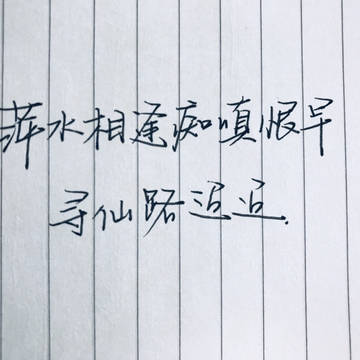 萍水相逢痴嗔恨早
寻仙路迢迢.